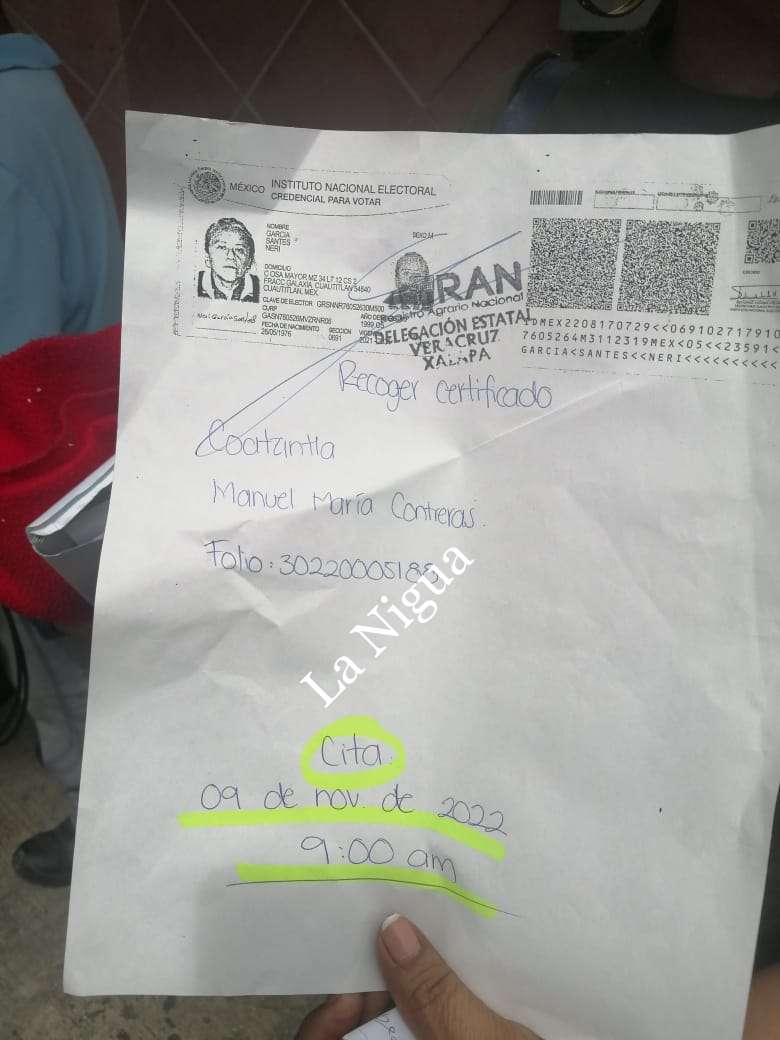 MÉXICO INSTITUTO NACIONAL ELECTORAL
CREDENCIAL PARA VOTAR
NOMBRE
GARCIA
SANTES
NERI
SEXO M
DOMICILIO
C OSA MAYOR MZ 34 LT 12 CS 2
FRACC GALAXIA CUAUTITLAN 54840
CUAUTITLAN, MEX.
CLAVE DE ELECTOR GRSNNR76052630M500
CURP
GASN760526MVZRNR08
AÑO DE
1999 05
FECHA DE NACIMIENTO
26/05/1976
SECCIÓN
0691
Neri García Santes
IDMEX2208170729<<069102717910
7605264M3112319MEX<05<<23591<
GARCIA<SANTES<<NERI<<<<<<<<<<
RAN
Registro Agrario Nacional
DELEGACIÓN ESTATAL
VERACRUZ
XALAPA
Recoger certificado
Coatzintla
Manuel María Contreras.
Folio: 30220005188
La Nigua
Cita.
09 de nov. de 2022
9:00 am